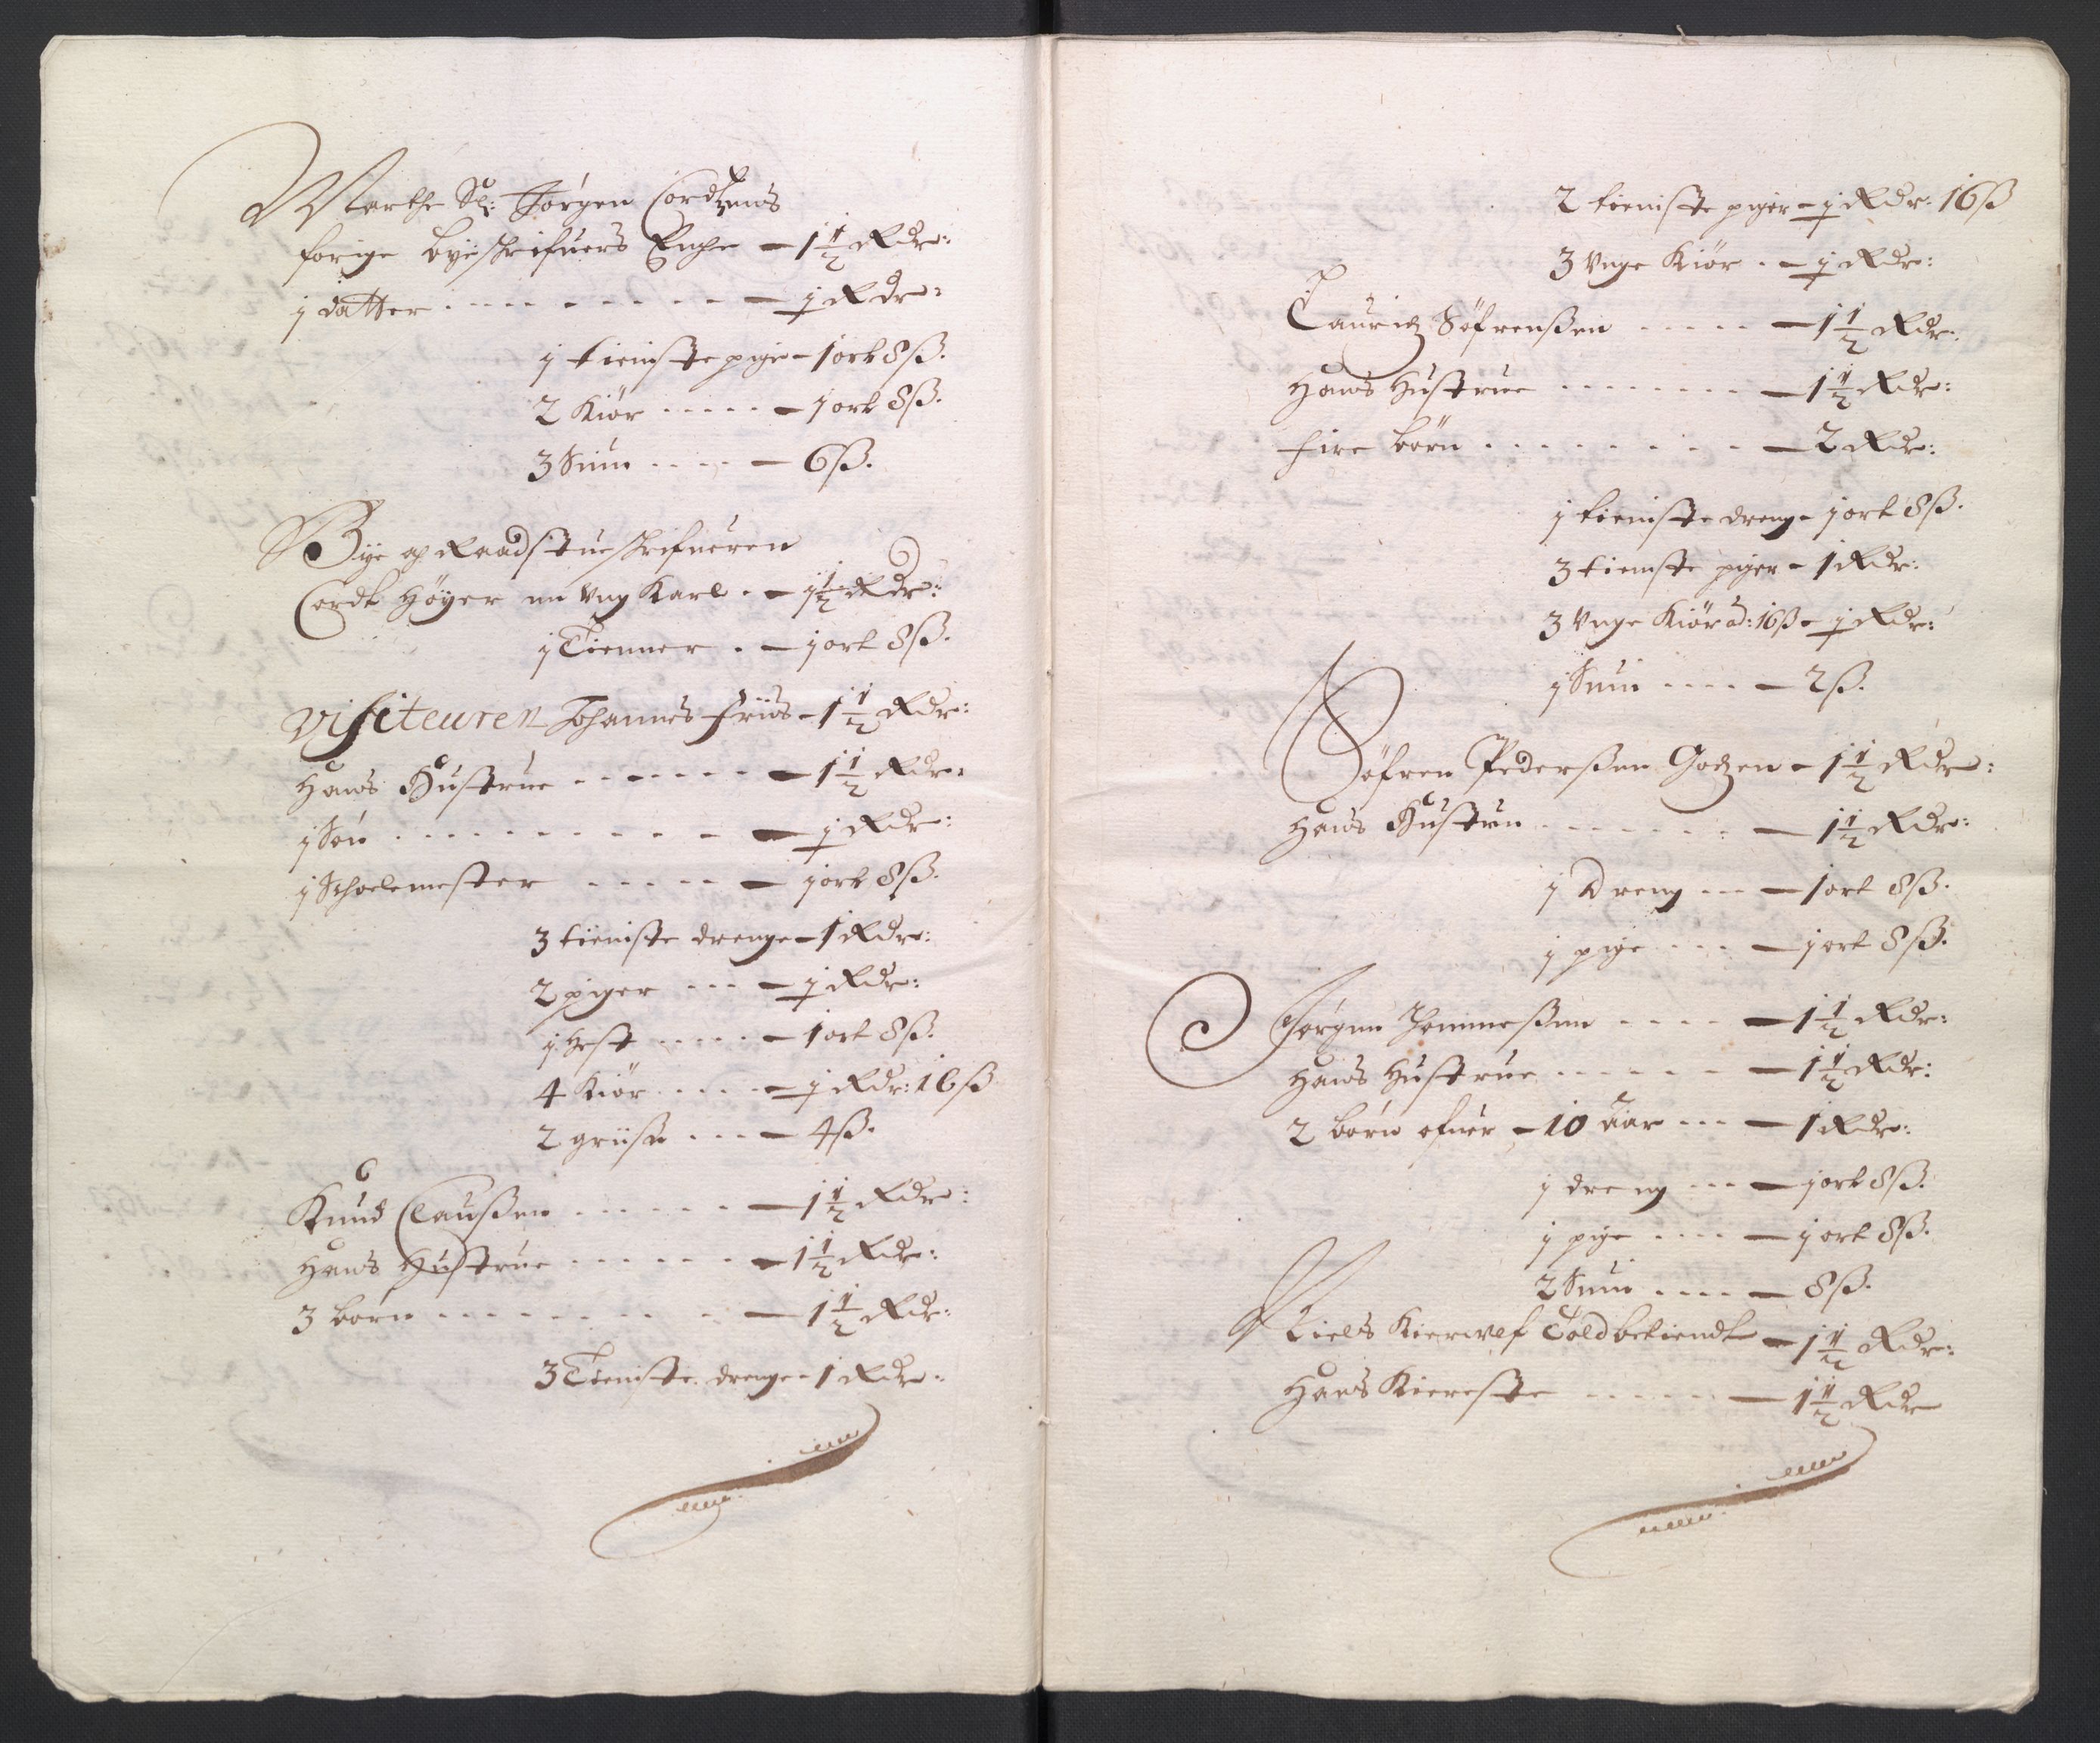 Marthe Sl: Jörgen Cordtzens
forige byeschrifuers Enche – 1 1/2 Rdr:
j datter – 1/2 Rdr:
j tieniste pige – 1 ort 8 ß.
2 Kiör – j ort 8 ß.
3 Suin – 6 ß.
Bye og Raadstueschrifueren
Cordt Höyer en Ung Karl – 1 1/2 Rdr:
j Tienner – j ort 8 ß.
Visiteuren Johannes Friis – 1 1/2 Rdr:
Hans Hustrue – 1 1/2 Rdr:
j Sön – 1/2 Rdr:
j Scholemester – j ort 8 ß.
3 tieniste drenge – 1 Rdr:
2 piger – 1/2 Rdr:
j Hest – 1 ort 8 ß.
4 Kiör – 1/2 Rdr: 16 ß
2 griise – 4 ß.
Knud Claußen – 1 1/2 Rdr:
Hans Hustrue – 1 1/2 Rdr:
3 börn – 1 1/2 Rdr:
3 Tieniste drenge – 1 Rdr:
2 tieniste piger – 1/2 Rdr: 16 ß
3 Unge Kiör – 1/2 Rdr:
Lauridz Söfrenßen – 1 1/2 Rdr:
Hans Hustrue – 1 1/2 Rdr:
fire börn – 2 Rdr:
j tieniste dreng – j ort 8 ß.
3 tieniste piger – 1 Rdr:
3 Unge Kiör ad: 16 ß – 1/2 Rdr:
j Suin – 2 ß.
Söfren Pederßen Godzen – 1 1/2 Rdr:
Hans Hustru – 1 1/2 Rdr:
j Dreng – 1 ort 8 ß.
j pige – j ort 8 ß.
Jörgen Thommeßen – 1 1/2 Rdr:
Hans Hustrue – 1 1/2 Rdr:
2 börn ofuer – 10 aar – 1 Rdr:
j dreng – j ort 8 ß.
j pige – j ort 8 ß.
2 Suin – 8 ß.
Niels Kierulf Toldbetiendt – 1 1/2 Rdr:
Hans Kiereste – 1 1/2 Rdr